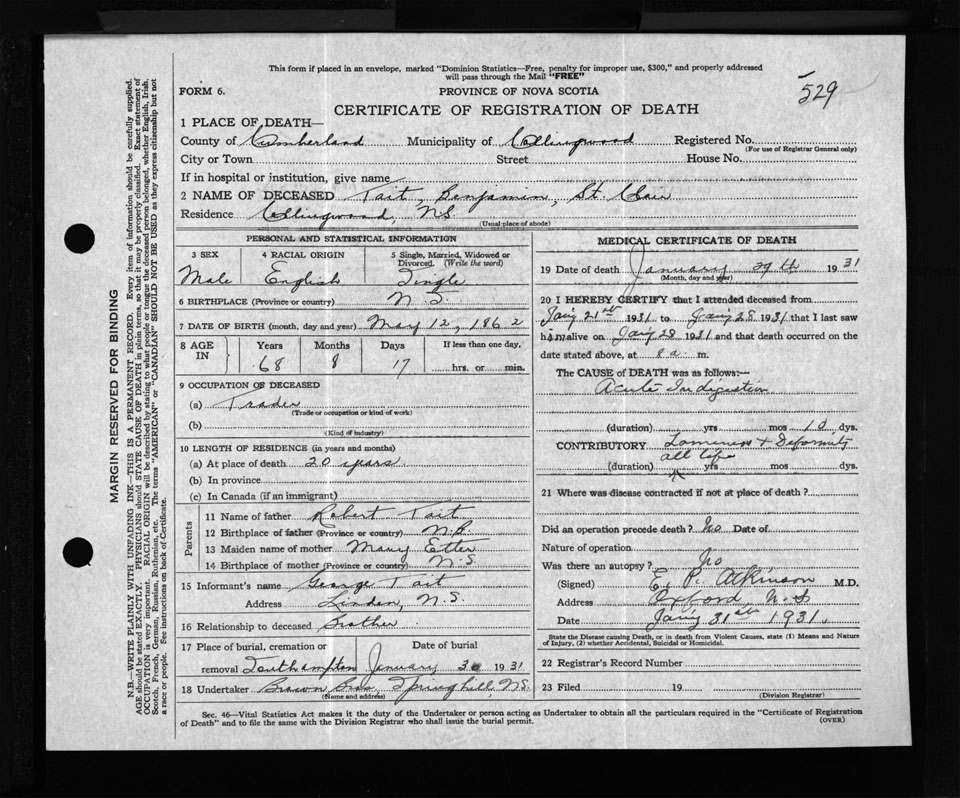 529
This form if placed in an envelope, marked "Dominion Statistics—Free, penalty for improper use, $300," and properly addressed
will pass through the Mail "FREE"
FORM 6.
PROVINCE OF NOVA SCOTIA
CERTIFICATE OF REGISTRATION OF DEATH
1 PLACE OF DEATH—
County of Cumberland Municipality of Collingwood Registered No.
(For use of Registrar General only)
City or Town Street House No.
If in hospital or institution, give name
2 NAME OF DECEASED Tait, Benjamin, St. Clair
Residence Collingwood, N.S.
(Usual place of abode)
PERSONAL AND STATISTICAL INFORMATION
3 SEX 4 RACIAL ORIGIN 5 Single, Married, Widowed or
Divorced. (Write the word)
Male English Single
6 BIRTHPLACE (Province or country) N.S.
7 DATE OF BIRTH (month, day and year) May 12, 1862
8 AGE IN Years Months Days If less than one day.
68 8 17 hrs. or min.
9 OCCUPATION OF DECEASED
(a) Trader
(Trade or occupation or kind of work)
(b)
(Kind of industry)
10 LENGTH OF RESIDENCE (in years and months)
(a) At place of death 20 years
(b) In province
(c) In Canada (if an immigrant)
Parents
11 Name of father Robert Tait
12 Birthplace of father (Province or country) N.B.
13 Maiden name of mother Mary Etter
14 Birthplace of mother (Province or country) N.S.
15 Informant's name George Tait
Address Linden, N.S.
16 Relationship to deceased Brother
17 Place of burial, cremation or Date of burial
removal Southampton January 30 1931
18 Undertaker Brown Bros, Springhill N.S.
(Name and address)
MEDICAL CERTIFICATE OF DEATH
19 Date of death January 29th 1931
(Month, day and year)
20 I HEREBY CERTIFY that I attended deceased from
Jany 21st 1931 to Jany 28 1931 that I last saw
him alive on Jany 28 1931 and that death occurred on the
date stated above, at 8 a. m.
The CAUSE of DEATH was as follows:—
Acute Indigestion
(duration) yrs mos 10 dys.
CONTRIBUTORY Lameness & Deformity
all life
(duration) yrs mos dys.
21 Where was disease contracted if not at place of death?
Did an operation precede death? No Date of
Nature of operation
Was there an autopsy? No
(Signed) E. P. Atkinson M.D.
Address Oxford N.S
Date Jany 31st 1931.
State the Disease causing Death, or in death from Violent Causes, state (1) Means and Nature
of Injury, (2) whether Accidental, Suicidal or Homicidal.
22 Registrar's Record Number
23 Filed 19
(Division Registrar)
Sec. 46—Vital Statistics Act makes it the duty of the Undertaker or person acting as Undertaker to obtain all the particulars required in the "Certificate of Registration
of Death" and to file the same with the Division Registrar who shall issue the burial permit.
(OVER)
MARGIN RESERVED FOR BINDING
N.B.—WRITE PLAINLY WITH UNFADING INK—THIS IS A PERMANENT RECORD. Every item of information should be carefully supplied.
AGE should be stated EXACTLY. PHYSICIANS should STATE CAUSE OF DEATH in plain terms, so that it may be properly classified. Exact statement of
OCCUPATION is very important. RACIAL ORIGIN will be described by stating to what people or tongue the deceased person belonged, whether English, Irish,
Scotch, French, German, Russian, Ruthenian, etc. The terms "AMERICAN" or "CANADIAN" SHOULD NOT BE USED as they express citizenship but not
a race or people. See instructions on back of Certificate.